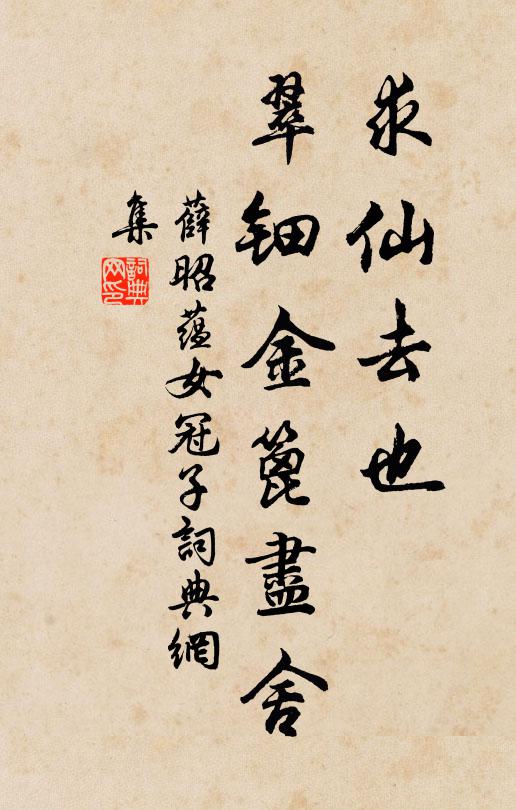 求仙去也
翠鈿金篦盡舍
薛昭蕴女冠子詞典網
集
詞典
网印